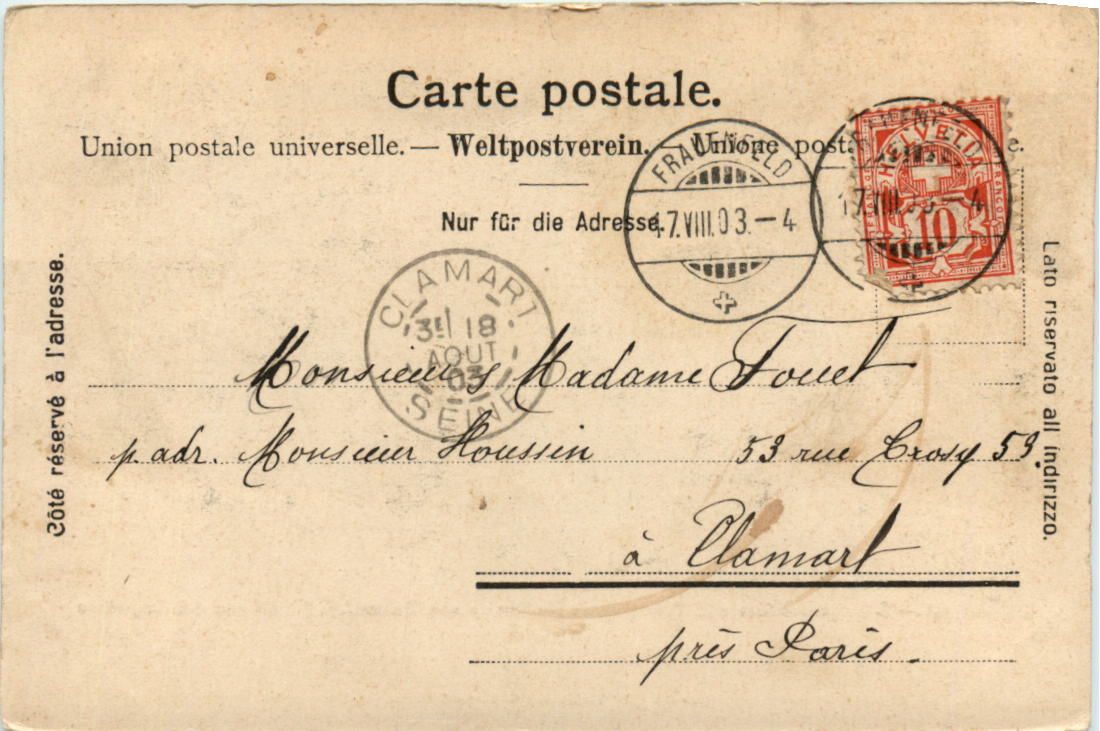 Carte postale.
Union postale universelle. — Weltpostverein. — Unione post
Nur für die Adresse.
FRAUENFELD
17.VIII.03.—4
17.VIII.03.—4
HELVETIA
FRANCO
FRANCO
10
CLAMART
3E 18
AOUT
03
SEINE
Côté réservé à l'adresse.
Lato riservato all indirizzo.
Monsieur Madame Fouet
p. adr. Monsieur Houssin 53 rue 53.
à Clamart
près Paris.